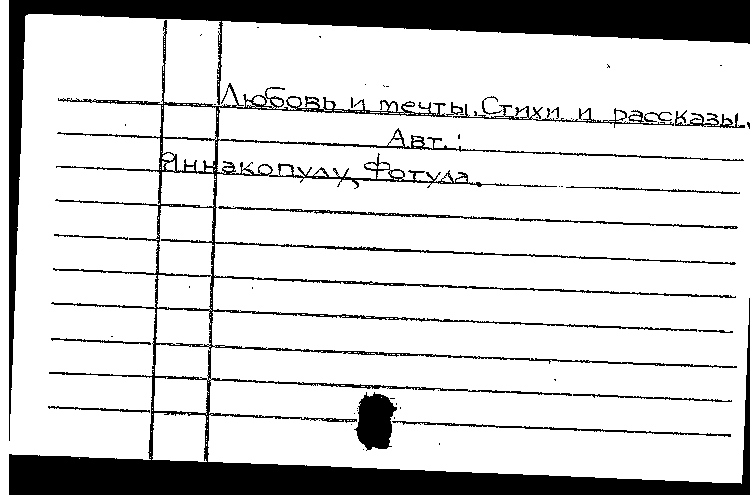 Любовь и мечты. Стихи и рассказы.
Авт.:
Яннакопулу, Фотула.